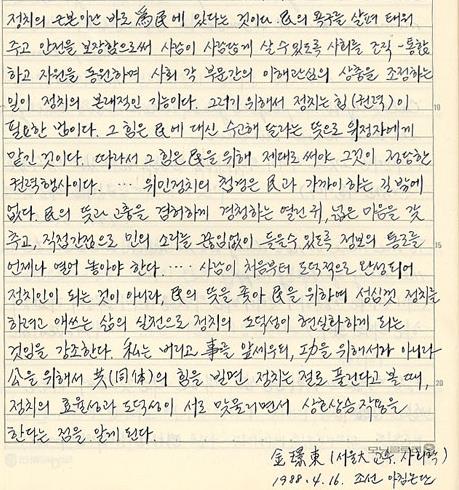 정치의 근본이란 바로 爲民에 있다는 것이다. 民의 욕구를 살펴 태워
주고 안전을 보장함으로써 사람이 사람답게 살 수 있도록 사회를 조직-통합
하고 자원을 동원하며 사회 각 부문간의 이해관심의 상충을 조정하는
일이 정치의 본래적인 기능이다. 그러기 위해서 정치는 힘(권력)이
10
필요한 법이다. 그 힘은 民에 대신 수고해 달라는 뜻으로 위정자에게
맡긴 것이다. 따라서 그 힘은 民을 위해 제대로 써야 그것이 정당한
권력행사이다. ‥‥ 위민정치의 첩경은 民과 가까이 하는 길 밖에
없다. 民의 뜻과 고충을 겸허하게 경청하는 열린 귀, 넓은 마음을 갖
추고, 직접간접으로 민의 소리를 끊임없이 들을수 있도록 정보의 통로를
15
언제나 열어 놓아야 한다. ‥‥ 사람이 처음부터 도덕적으로 완성되어
정치인이 되는 것이 아니라, 民의 뜻을 좇아 民을 위하여 성심껏 정치를
하려고 애쓰는 삶의 실천으로 정치의 도덕성이 현실화하게 되는
것임을 강조한다. 私는 버리고 事를 앞세우되, 功을 위해서가 아니라
公을 위해서 共(同体)의 힘을 빌면 정치는 절로 풀린다고 볼 때,
20
정치의 효율성과 도덕성이 서로 맞물리면서 상호상승작용을
한다는 점을 알게 된다.
金璟東 (서울大 교수. 사회학)
1988. 4. 16. 조선 아침논단